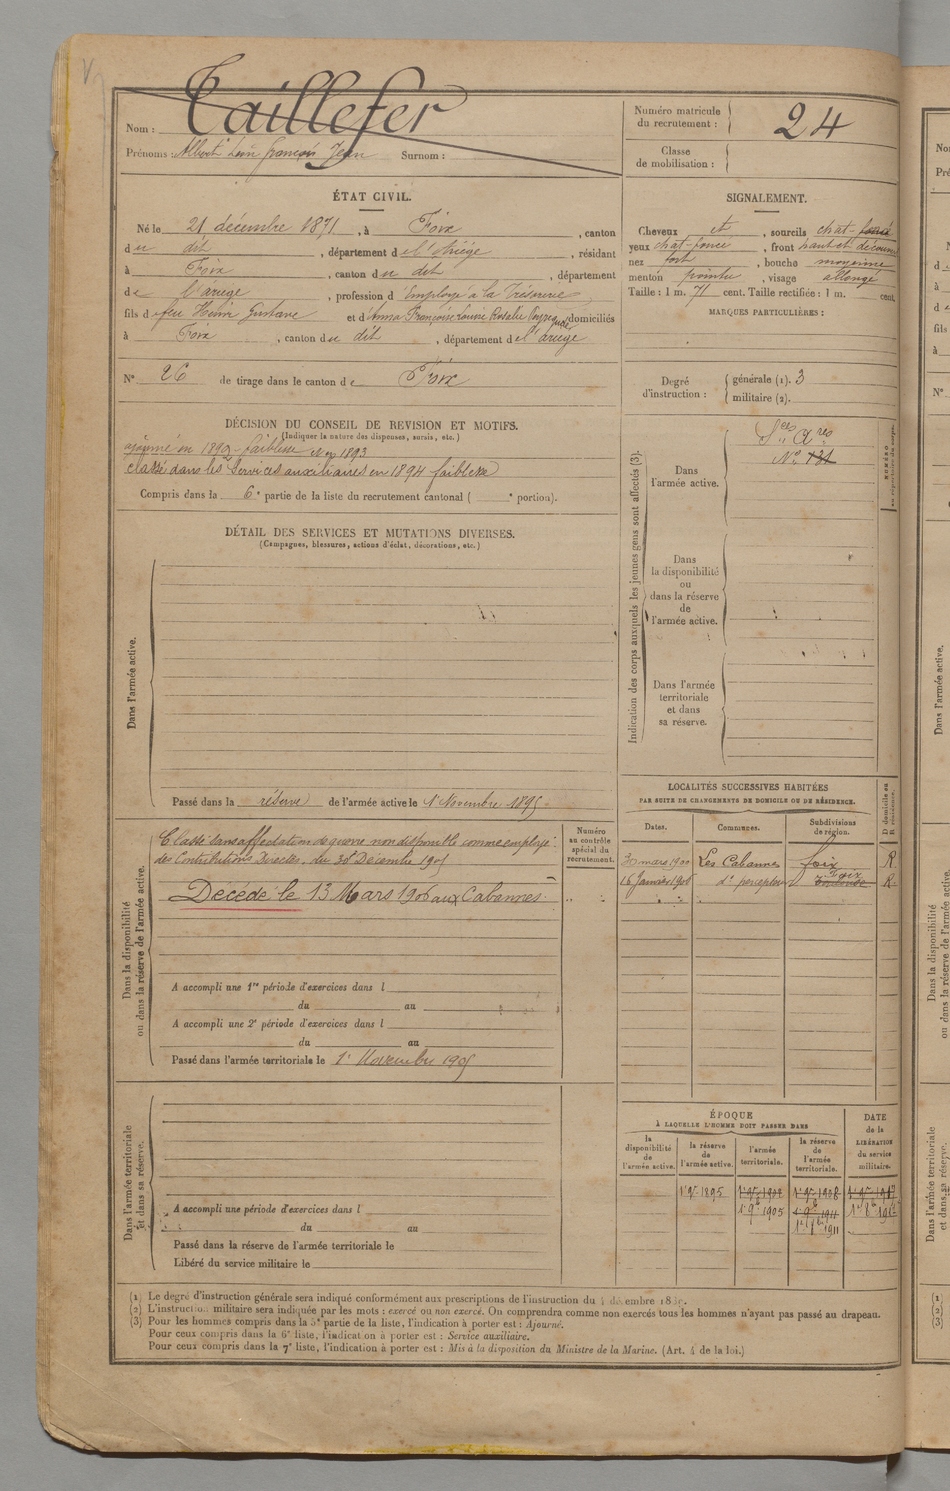 Nom : Taillefer
Prénoms : Albert Léon françois Jean Surnom :
Numéro matricule
du recrutement : 24
Classe
de mobilisation :
ÉTAT CIVIL.
Né le 21 décembre 1871, à Foix, canton
du dit, département de l'Ariège, résidant
à Foix, canton du dit, département
de l'ariège, profession d'Employé à la Trésorerie,
fils de feu Henri Gustave et d'Anna Françoise Louise Rosalie domiciliés
à Foix, canton du dit, département de l'ariège
N° 26 de tirage dans le canton de Foix
SIGNALEMENT.
Cheveux et, sourcils chat-foncé
yeux chat-foncé, front haut et découvert
nez fort, bouche moyenne
menton pointu, visage allongé
Taille : 1 m. 71 cent. Taille rectifiée : 1 m. cent.
MARQUES PARTICULIÈRES :
Degré
d'instruction :
générale (1). 3
militaire (2).
DÉCISION DU CONSEIL DE REVISION ET MOTIFS.
(Indiquer la nature des dispenses, sursis, etc.)
ajourné en 1892 - faiblesse 1893
classé dans les Services auxiliaires en 1894 faiblesse
Compris dans la 6e partie de la liste du recrutement cantonal ( e portion).
DÉTAIL DES SERVICES ET MUTATIONS DIVERSES.
(Campagnes, blessures, actions d'éclat, décorations, etc.)
Dans l'armée active.
Passé dans la réserve de l'armée active le 1er Novembre 1895
Indication des corps auxquels les jeunes gens sont affectés (3).
Dans
l'armée active.
Sces Ares
N° 131
Dans
la disponibilité
ou
dans la réserve
de
l'armée active.
Dans l'armée
territoriale
et dans
sa réserve.
NUMÉRO
au répertoire du corps.
Dans la disponibilité
ou dans la réserve de l'armée active.
Classé dans affectation de guerre non disponible comme employé
des Contributions Directes, du 30 Décembre 1905
Décédé le 13 Mars 1906 aux Cabannes.
Numéro
au contrôle
spécial du
recrutement.
A accompli une 1re période d'exercices dans l
du au
A accompli une 2e période d'exercices dans l
du au
Passé dans l'armée territoriale le 1er Novembre 1905
LOCALITÉS SUCCESSIVES HABITÉES
PAR SUITE DE CHANGEMENTS DE DOMICILE OU DE RÉSIDENCE.
Dates. Communes. Subdivisions
de région.
30 mars 1900 Les Cabannes foix R.
16 Janvier 1906 do percepteur Toulouse Foix R.
Dans l'armée territoriale
et dans sa réserve.
A accompli une période d'exercices dans l
du au
Passé dans la réserve de l'armée territoriale le
Libéré du service militaire le
ÉPOQUE
À LAQUELLE L'HOMME DOIT PASSER DANS
DATE
de la
LIBÉRATION
du service
militaire.
la
disponibilité
de
l'armée active.
la réserve
de
l'armée active.
l'armée
territoriale.
la réserve
de
l'armée
territoriale.
1er 9bre 1895
1er 9bre 1905 1er 9bre 1911
1er 8bre 1911
(1) Le degré d'instruction générale sera indiqué conformément aux prescriptions de l'instruction du
(2) L'instruction militaire sera indiquée par les mots : exercé ou non exercé. On comprendra comme non exercés tous les hommes n'ayant pas passé au drapeau.
(3) Pour les hommes compris dans la 5e partie de la liste, l'indication à porter est : Ajourné.
Pour ceux compris dans la 6e liste, l'indication à porter est : Service auxiliaire.
Pour ceux compris dans la 7e liste, l'indication à porter est : Mis à la disposition du Ministre de la Marine. (Art. 4 de la loi.)